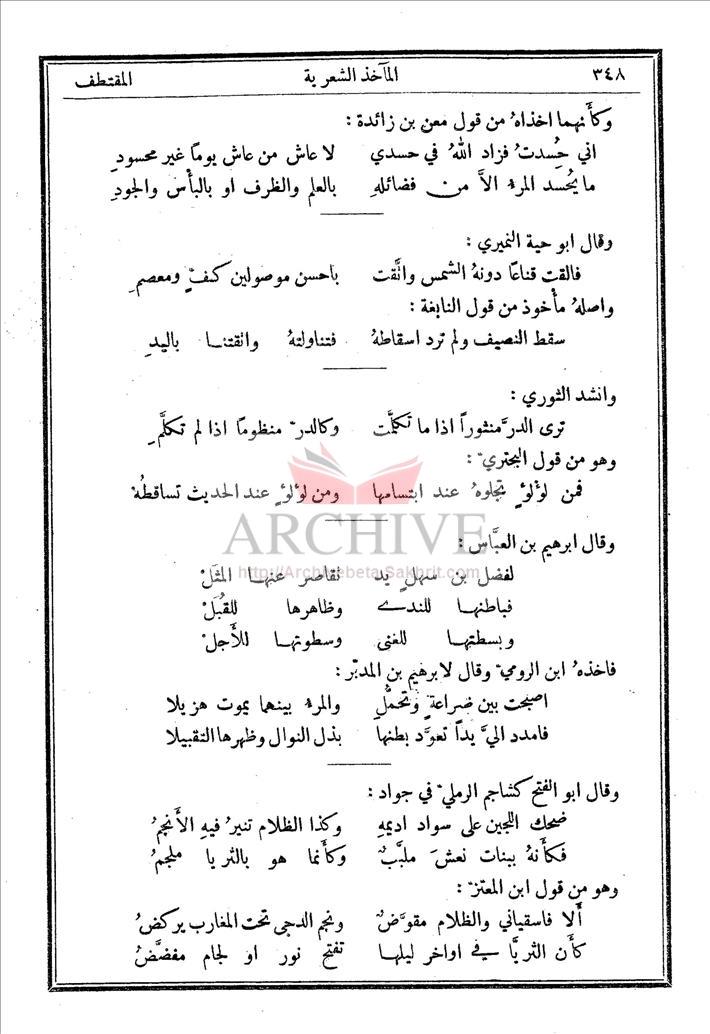 ٣٤٨ المآخذ الشعرية المقتطف
وكأنهما اخذاهُ من قول معن بن زائدة :
اني حُسدتُ فزاد اللهُ في حسدي لا عاش من عاش يومًا غير محسودِ
ما يُحسد المرءُ الاَّ من فضائلهِ بالعلم والظرف او بالبأس والجودِ
وقال ابو حية النميري :
فالقت قناعًا دونهُ الشمس واتَّقت باحسن موصولين كفٍّ ومعصمِ
واصلهُ مأخوذ من قول النابغة :
سقط النصيف ولم ترد اسقاطهُ فتناولتهُ واتقتنا باليدِ
وانشد الثوري :
ترى الدرَّ منثوراً اذا ما تكلَّمت وكالدرّ منظومًا اذا لم تكلَّمِ
وهو من قول البحتريّ :
فمن لؤلؤٍ تجلوهُ عند ابتسامها ومن لؤلؤٍ عند الحديث تساقطُهْ
ARCHIVE
وقال ابرهيم بن العبَّاس :
http://Archivebeta.Sakhrit.com
لفضل بن سهلٍ يد تقاصر عنها المثَلْ
فباطنها للندے وظاهرها للقُبَلْ
وبسطتها للغنى وسطوتها للأجلْ
فاخذهُ ابن الروميّ وقال لابرهيم بن المدبّر :
اصبحت بين ضراعةٍ وتحمُّلِ والمرءُ بينهما يموت هزيلا
فامدد اليَّ يداً تعوَّد بطنها بذل النوال وظهرها التقبيلا
وقال ابو الفتح كشاجم الرمليّ في جواد :
ضحك اللجين على سواد اديمهِ وكذا الظلام تنيرُ فيهِ الأنجمُ
فكأنهُ ببنات نعشَ ملبَّبٌ وكأنما هو بالثريا ملجمُ
وهو من قول ابن المعتزّ :
ألا فاسقياني والظلام مقوَّضٌ ونجم الدجى تحت المغارب يركضُ
كأن الثريَّا في اواخر ليلها تفتح نور او لجام مفضَّضُ